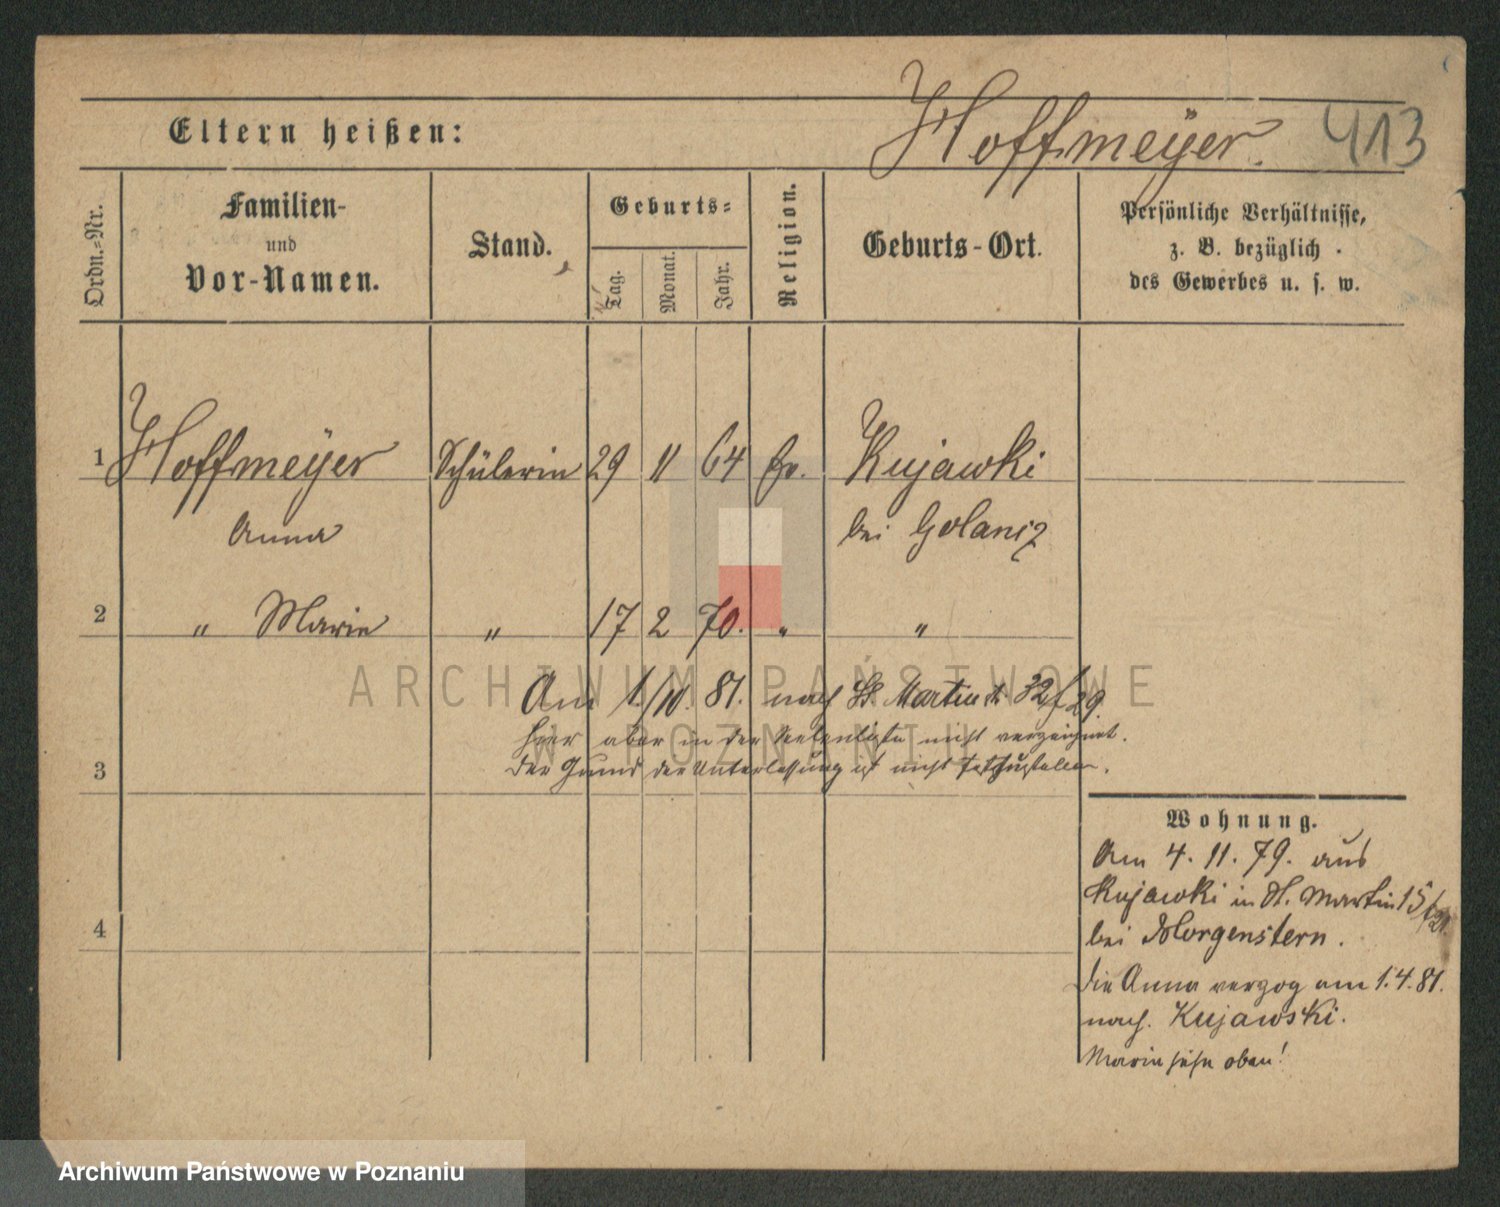 Eltern heißen:
Hoffmeÿer.
413
Ordn.-Nr.
Familien-
und
Vor-Namen.
Stand.
Geburts-
Tag.
Monat.
Jahr.
Religion.
Geburts-Ort.
Persönliche Verhältnisse,
z. B. bezüglich
des Gewerbes u. s. w.
1 Hoffmeÿer Schülerin 29 11 64 Ev. Kujawki
Anna bei Golancz
2 " Marie " 17 2 70. " "
Am 1./10. 81. nach St. Martinstr. 32/29.
hier aber in der Seelenliste nicht verzeichnet.
Der Grund der Unterlassung ist nicht festzustellen.
3
4
Wohnung.
Am 4. 11. 79. aus
Kujawki in St. Martin 15/21.
bei Morgenstern.
Die Anna verzog am 1.4.81.
nach Kujawski.
Marie siehe oben!
ARCHIWUM PAŃSTWOWE
W POZNANIU
Archiwum Państwowe w Poznaniu